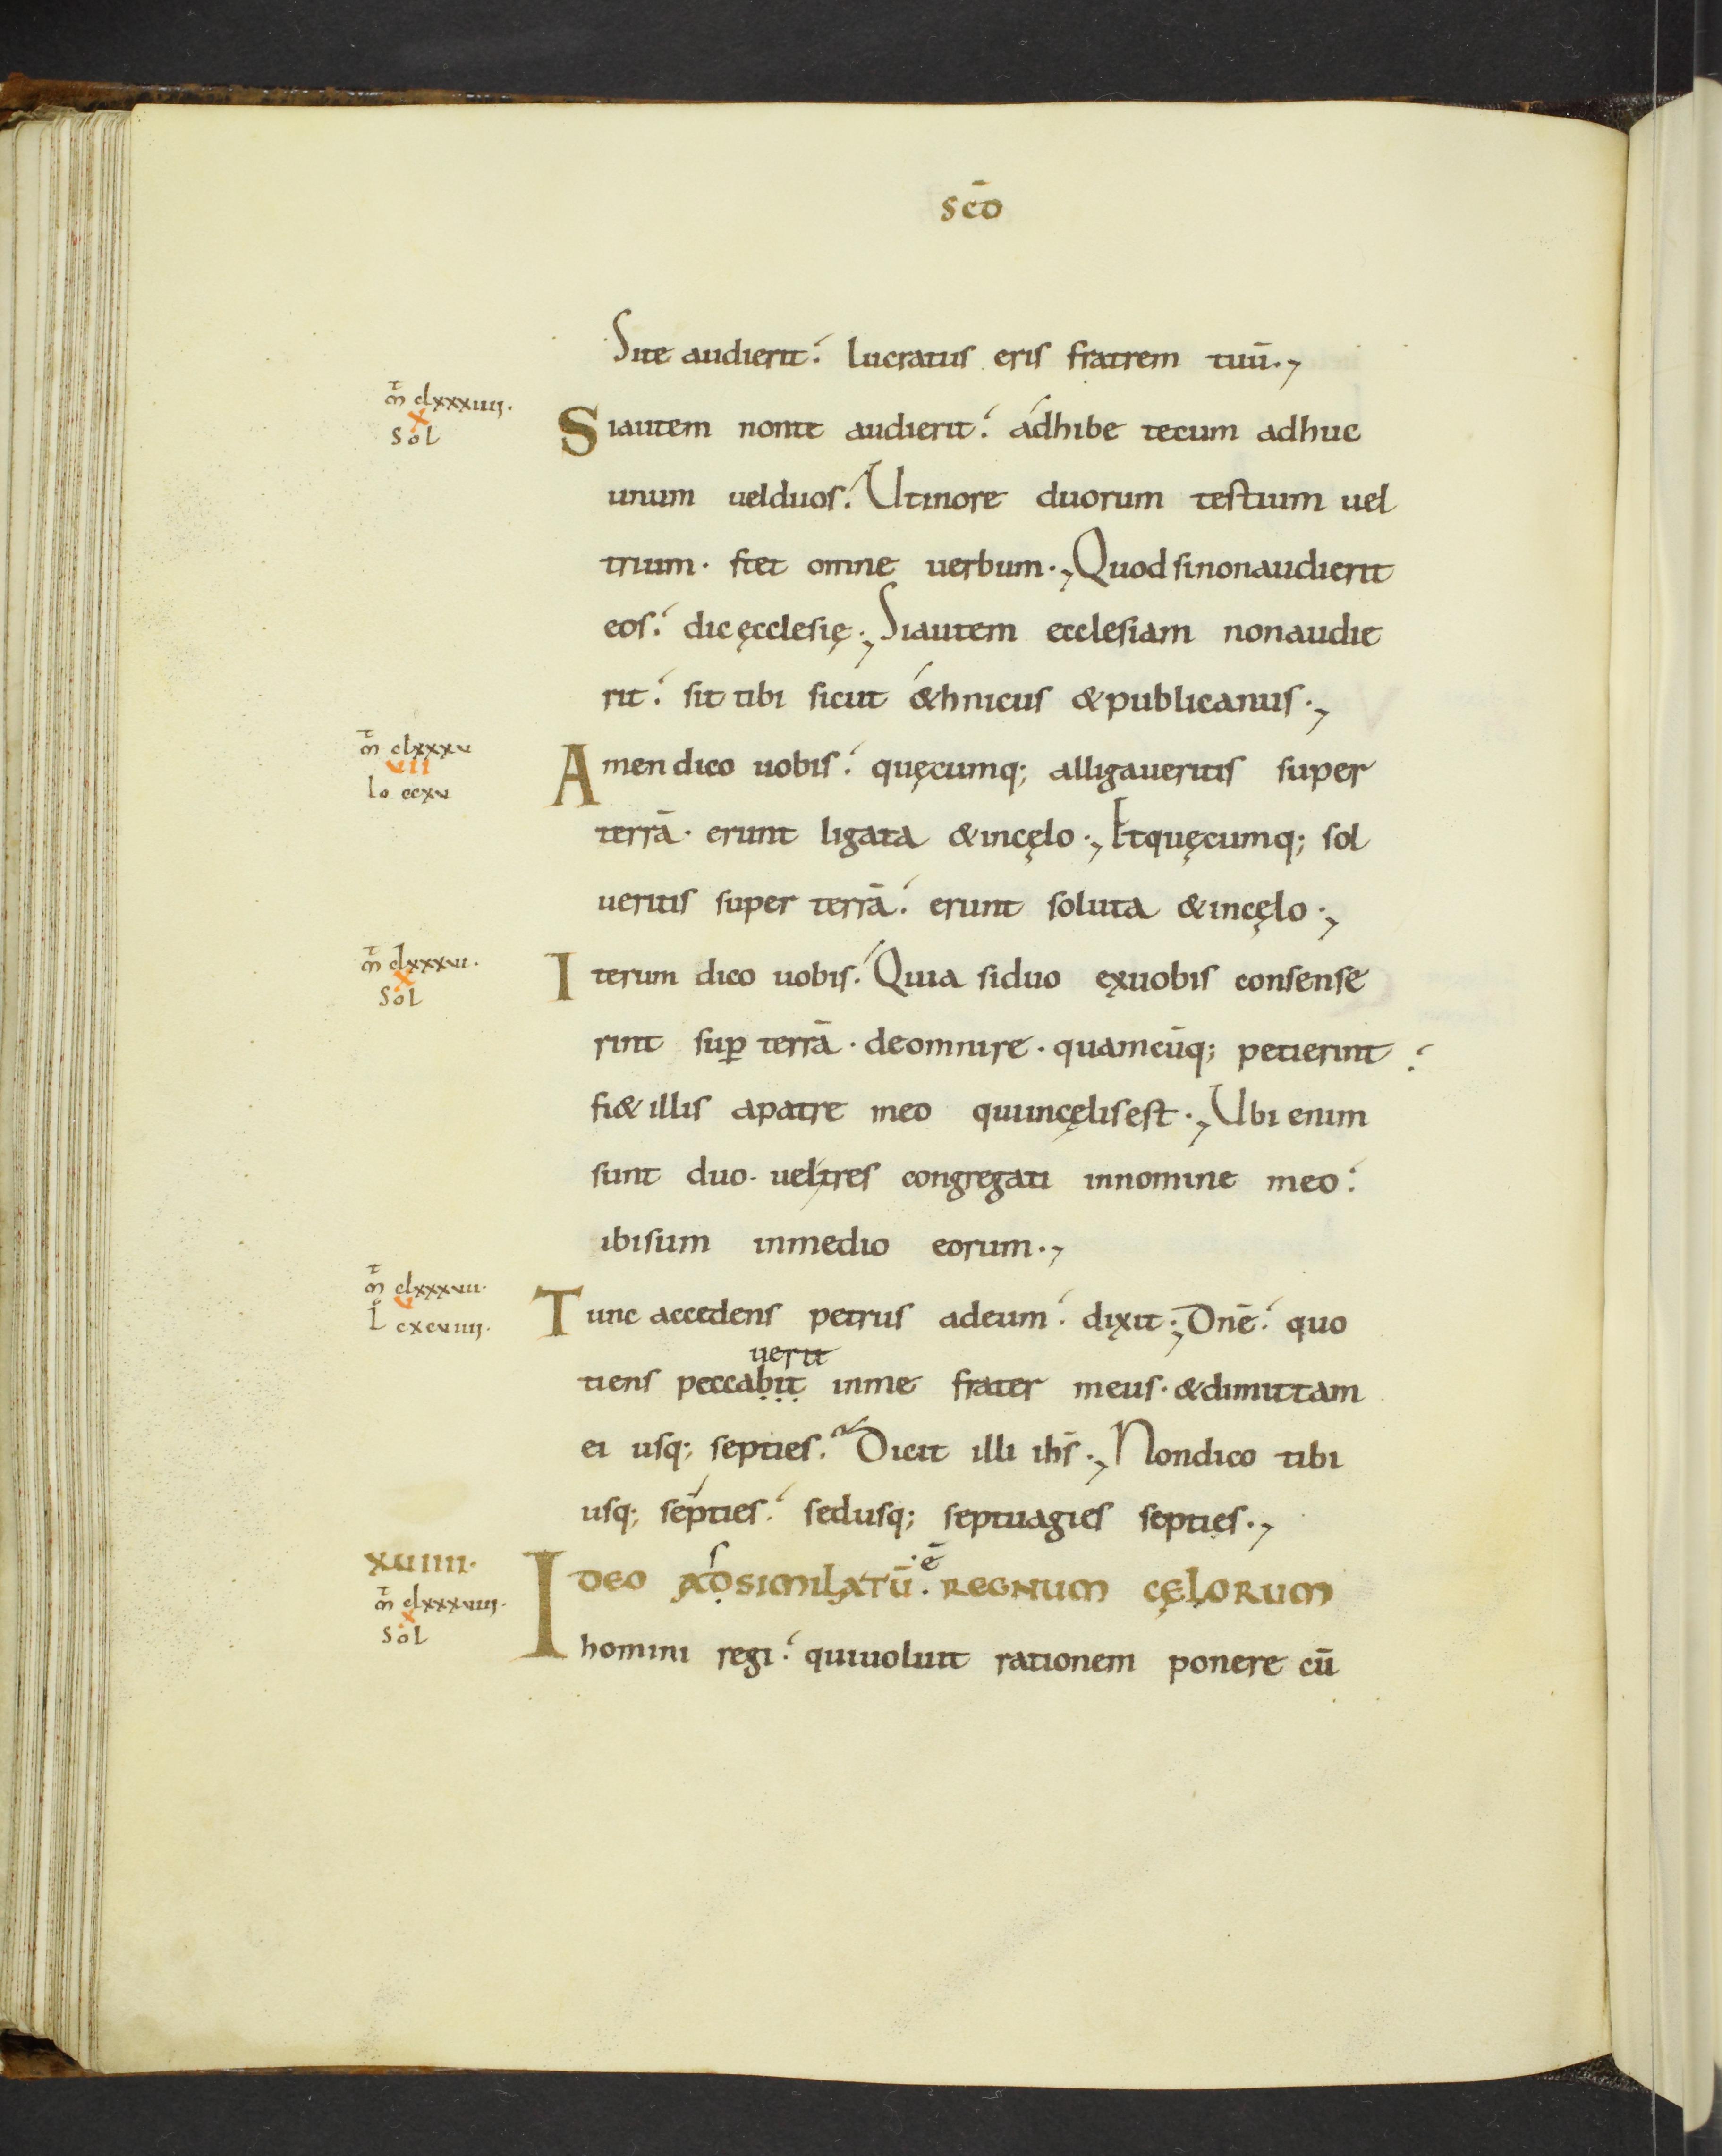 scō
Site audierit. lucratus eris fratrem tuū.,
m̄t clxxxiiii.
x
sol
Siautem nonte audierit. adhibe tecum adhuc
unum uelduos. Utinore duorum testium uel
trium. stet omne uerbum., Quodsinonaudierit
eos. dicęcclesię., Siautem ecclesiam nonaudie
rit. sit tibi sicut &hnicus &publicanus.,
m̄t clxxxv
vii
io ccxv
Amendico uobis. quęcumq; alligaueritis super
terrā. erunt ligata &incęlo., Etquęcumq; sol
ueritis super terrā. erunt soluta &incęlo.,
m̄t clxxxvi.
x
sol
Iterum dico uobis. Quia siduo exuobis consense
rint suꝑ terrā. deomnire. quamcūq; petierint.
fi& illis apatre meo quiincęlisest., Ubi enim
sunt duo. ueltres congregati innomine meo.
ibisum inmedio eorum.,
m̄t clxxxvii.
v
l cxcviiii.
Tunc accedens petrus adeum. dixit., Dnē. quo
uerit
tiens peccabit inme frater meus. &dimittam
ei usq; septies. Dicit illi ihs̄., Nondico tibi
usq; septies. sedusq; septuagies septies.,
xuiiii.
m̄t clxxxviii.
x
sol
s ·ē
IDEO ADSIMILATŪ. REGNUM CĘLORUM
homini regi. quiuoluit rationem ponere cū